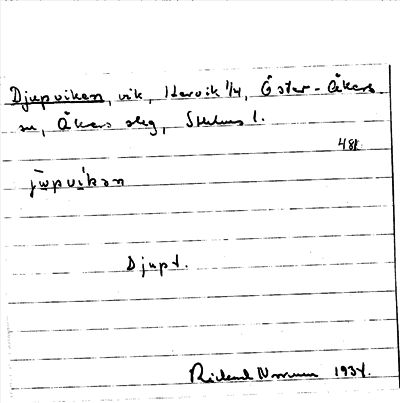 Djupviken, vik, Hervik 1/4, Öster-Åkers
sn, Åkers skg, Sthlms l.
481.
jωpvikən
Djupt.
Rickard 1934.